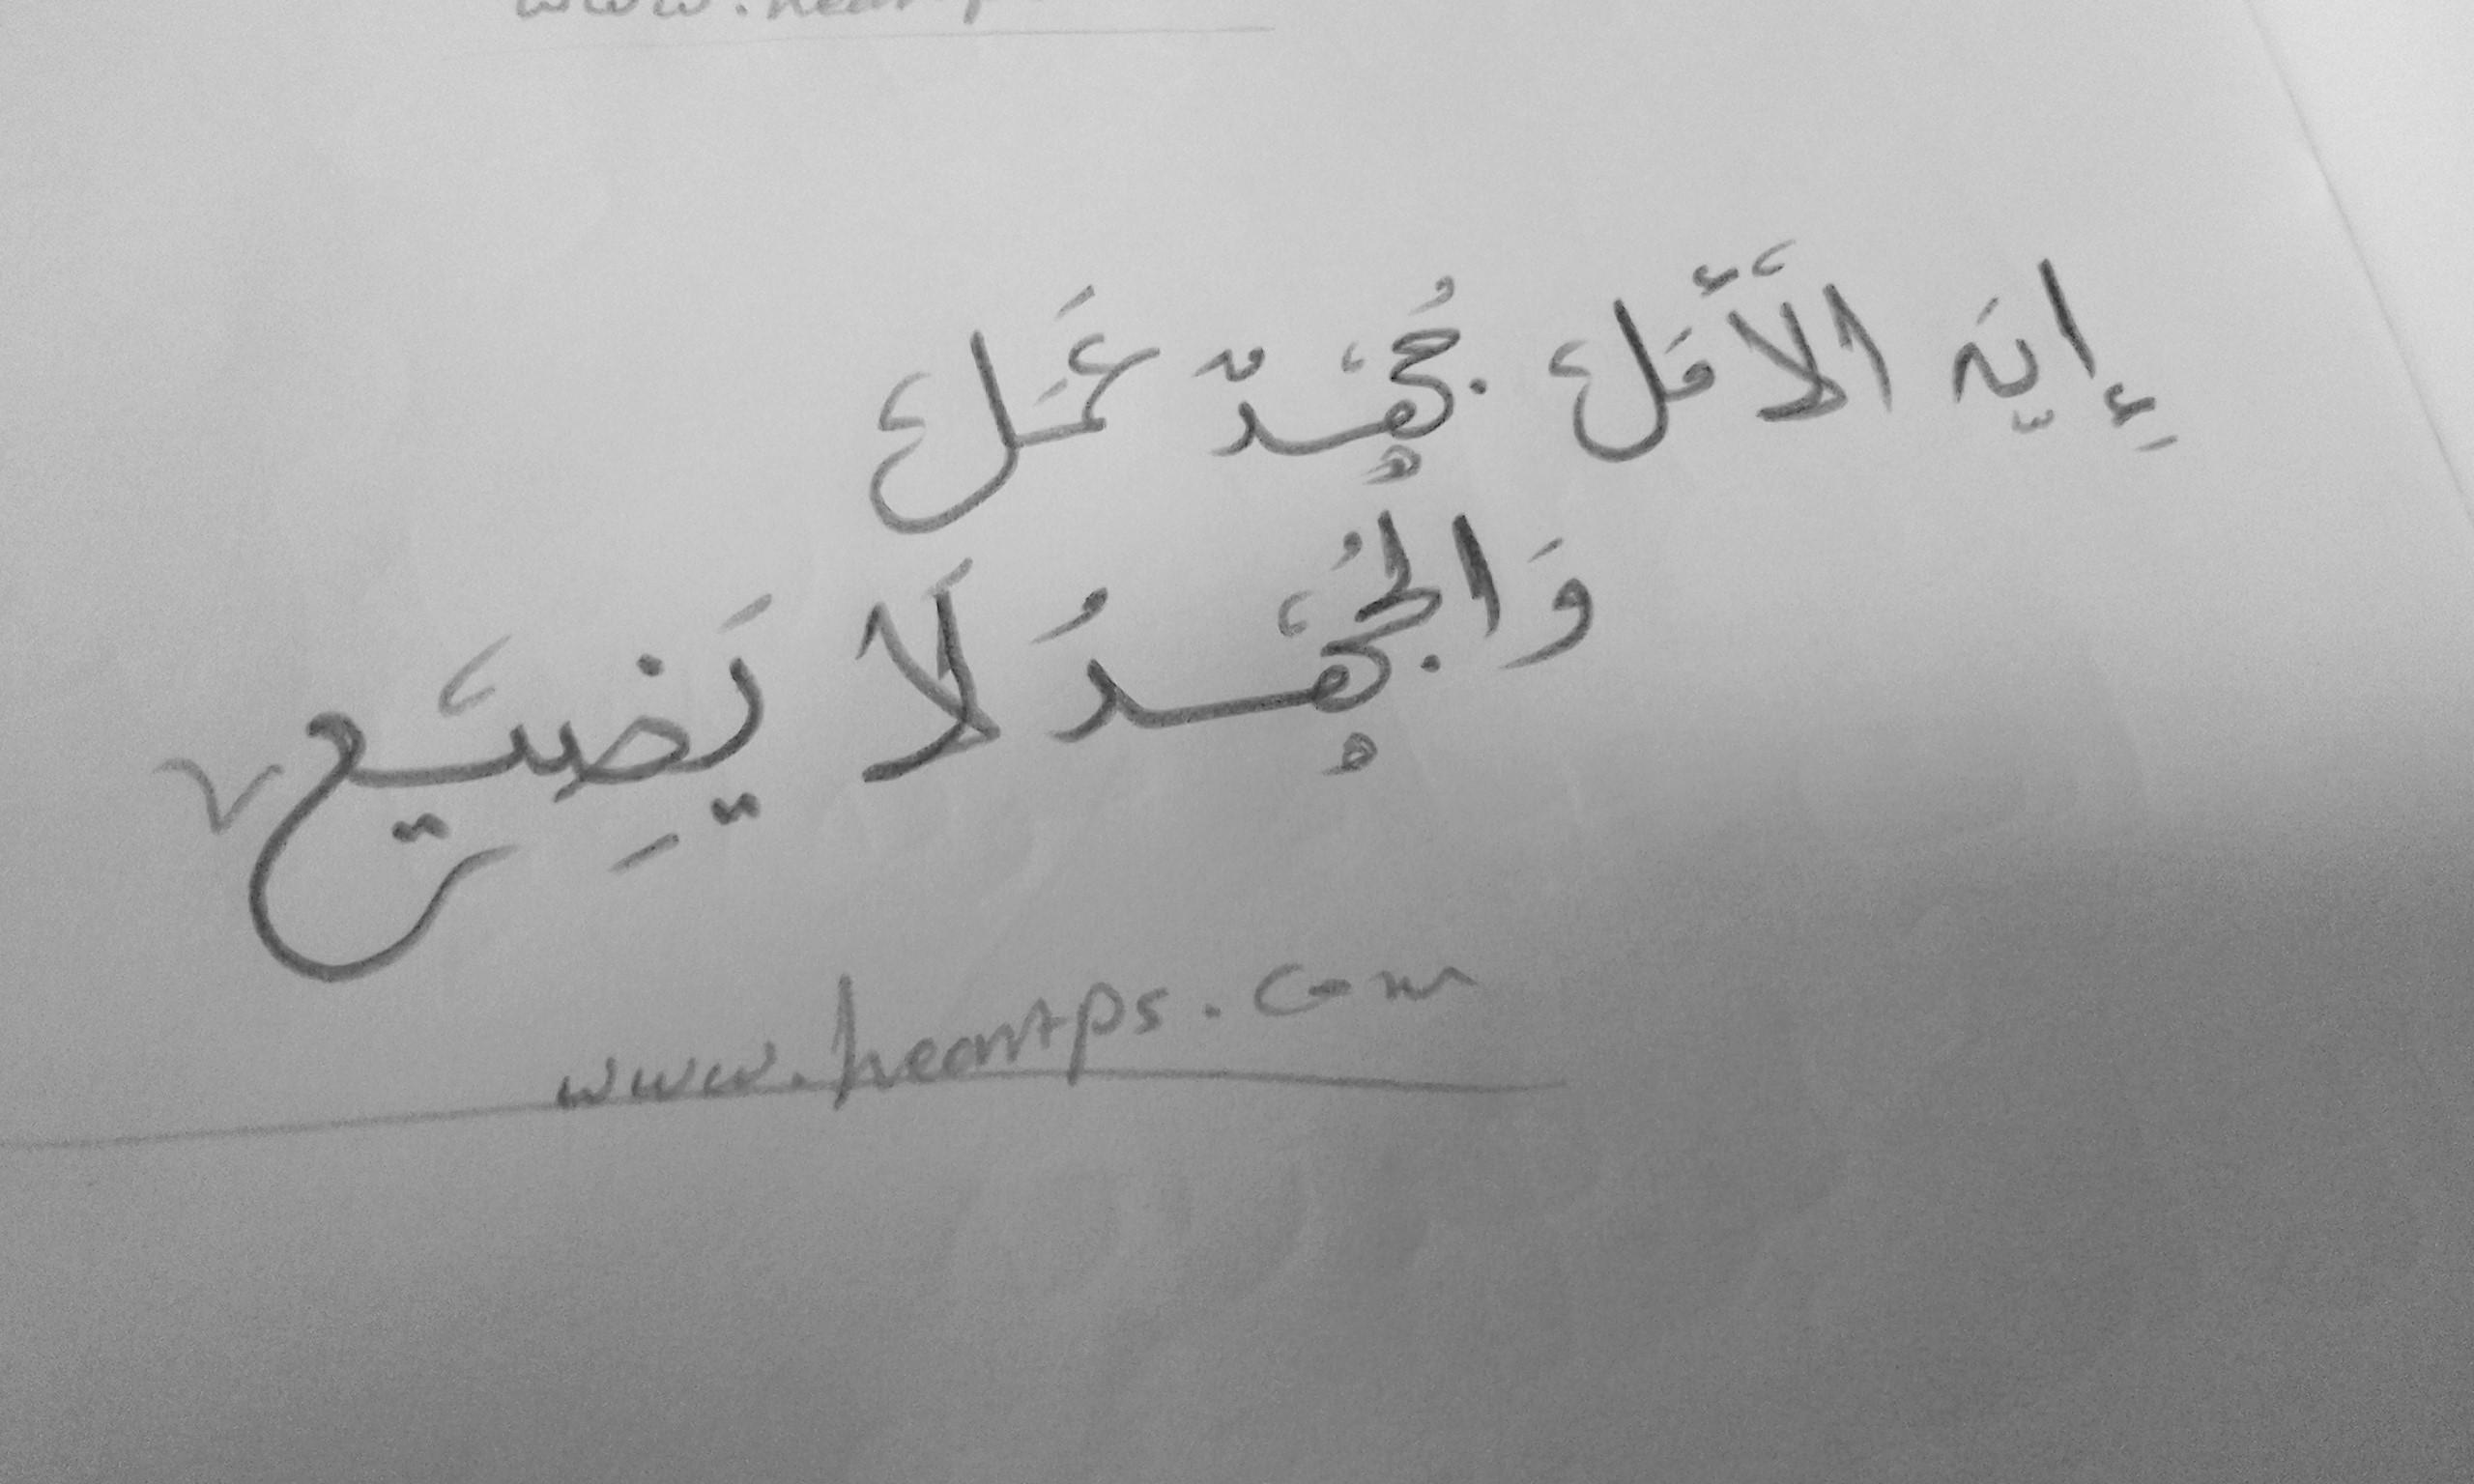 إِيَه الأَمَل جُهْدٌ عَمَل
وَالجُهْدُ لَا يَضِيع
www.heartps.com